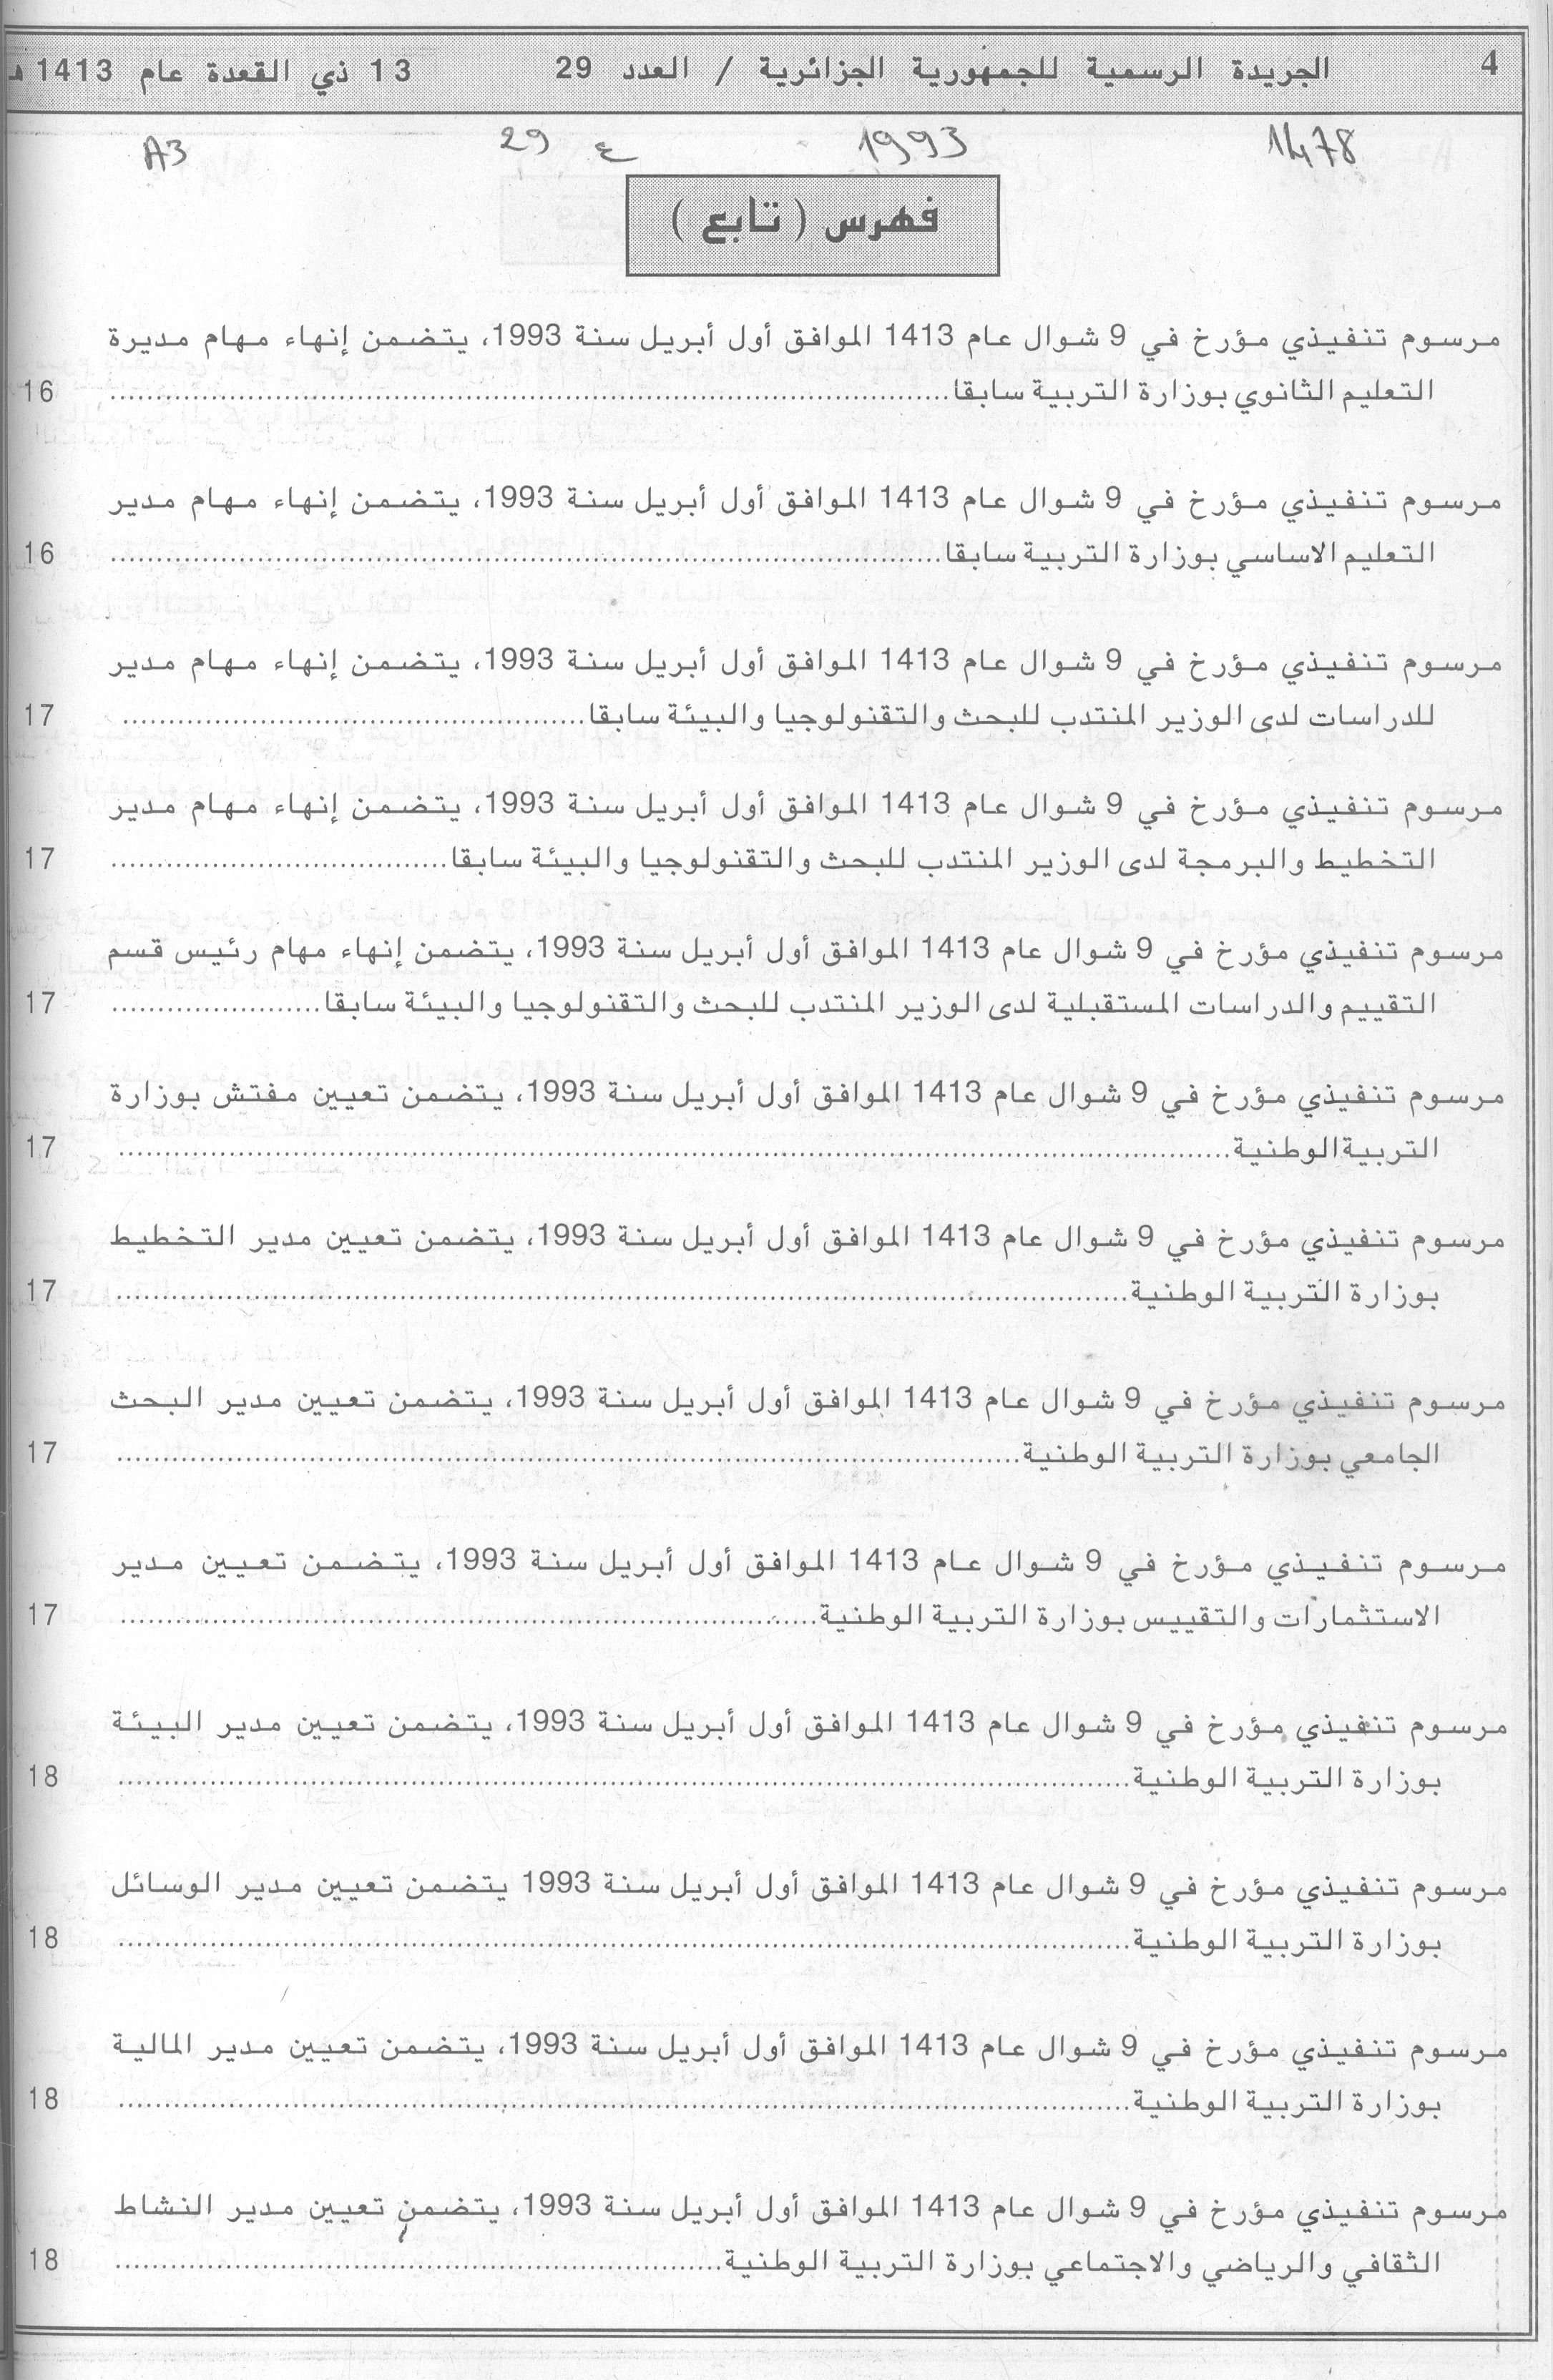 4 الجريدة الرسمية للجمهورية الجزائرية / العدد 29 13 ذي القعدة عام 1413 هـ
1478 1993 ع 29 A3
فهرس ( تابع )
مرسوم تنفيذي مؤرخ في 9 شوال عام 1413 الموافق أول أبريل سنة 1993، يتضمن إنهاء مهام مديرة
التعليم الثانوي بوزارة التربية سابقا.......... 16
مرسوم تنفيذي مؤرخ في 9 شوال عام 1413 الموافق أول أبريل سنة 1993، يتضمن إنهاء مهام مدير
التعليم الاساسي بوزارة التربية سابقا.......... 16
مرسوم تنفيذي مؤرخ في 9 شوال عام 1413 الموافق أول أبريل سنة 1993، يتضمن إنهاء مهام مدير
للدراسات لدى الوزير المنتدب للبحث والتقنولوجيا والبيئة سابقا.......... 17
مرسوم تنفيذي مؤرخ في 9 شوال عام 1413 الموافق أول أبريل سنة 1993، يتضمن إنهاء مهام مدير
التخطيط والبرمجة لدى الوزير المنتدب للبحث والتقنولوجيا والبيئة سابقا.......... 17
مرسوم تنفيذي مؤرخ في 9 شوال عام 1413 الموافق أول أبريل سنة 1993، يتضمن إنهاء مهام رئيس قسم
التقييم والدراسات المستقبلية لدى الوزير المنتدب للبحث والتقنولوجيا والبيئة سابقا.......... 17
مرسوم تنفيذي مؤرخ في 9 شوال عام 1413 الموافق أول أبريل سنة 1993، يتضمن تعيين مفتش بوزارة
التربية الوطنية.......... 17
مرسوم تنفيذي مؤرخ في 9 شوال عام 1413 الموافق أول أبريل سنة 1993، يتضمن تعيين مدير التخطيط
بوزارة التربية الوطنية.......... 17
مرسوم تنفيذي مؤرخ في 9 شوال عام 1413 الموافق أول أبريل سنة 1993، يتضمن تعيين مدير البحث
الجامعي بوزارة التربية الوطنية.......... 17
مرسوم تنفيذي مؤرخ في 9 شوال عام 1413 الموافق أول أبريل سنة 1993، يتضمن تعيين مدير
الاستثمارات والتقييس بوزارة التربية الوطنية.......... 17
مرسوم تنفيذي مؤرخ في 9 شوال عام 1413 الموافق أول أبريل سنة 1993، يتضمن تعيين مدير البيئة
بوزارة التربية الوطنية.......... 18
مرسوم تنفيذي مؤرخ في 9 شوال عام 1413 الموافق أول أبريل سنة 1993 يتضمن تعيين مدير الوسائل
بوزارة التربية الوطنية.......... 18
مرسوم تنفيذي مؤرخ في 9 شوال عام 1413 الموافق أول أبريل سنة 1993، يتضمن تعيين مدير المالية
بوزارة التربية الوطنية.......... 18
مرسوم تنفيذي مؤرخ في 9 شوال عام 1413 الموافق أول أبريل سنة 1993، يتضمن تعيين مدير النشاط
الثقافي والرياضي والاجتماعي بوزارة التربية الوطنية.......... 18